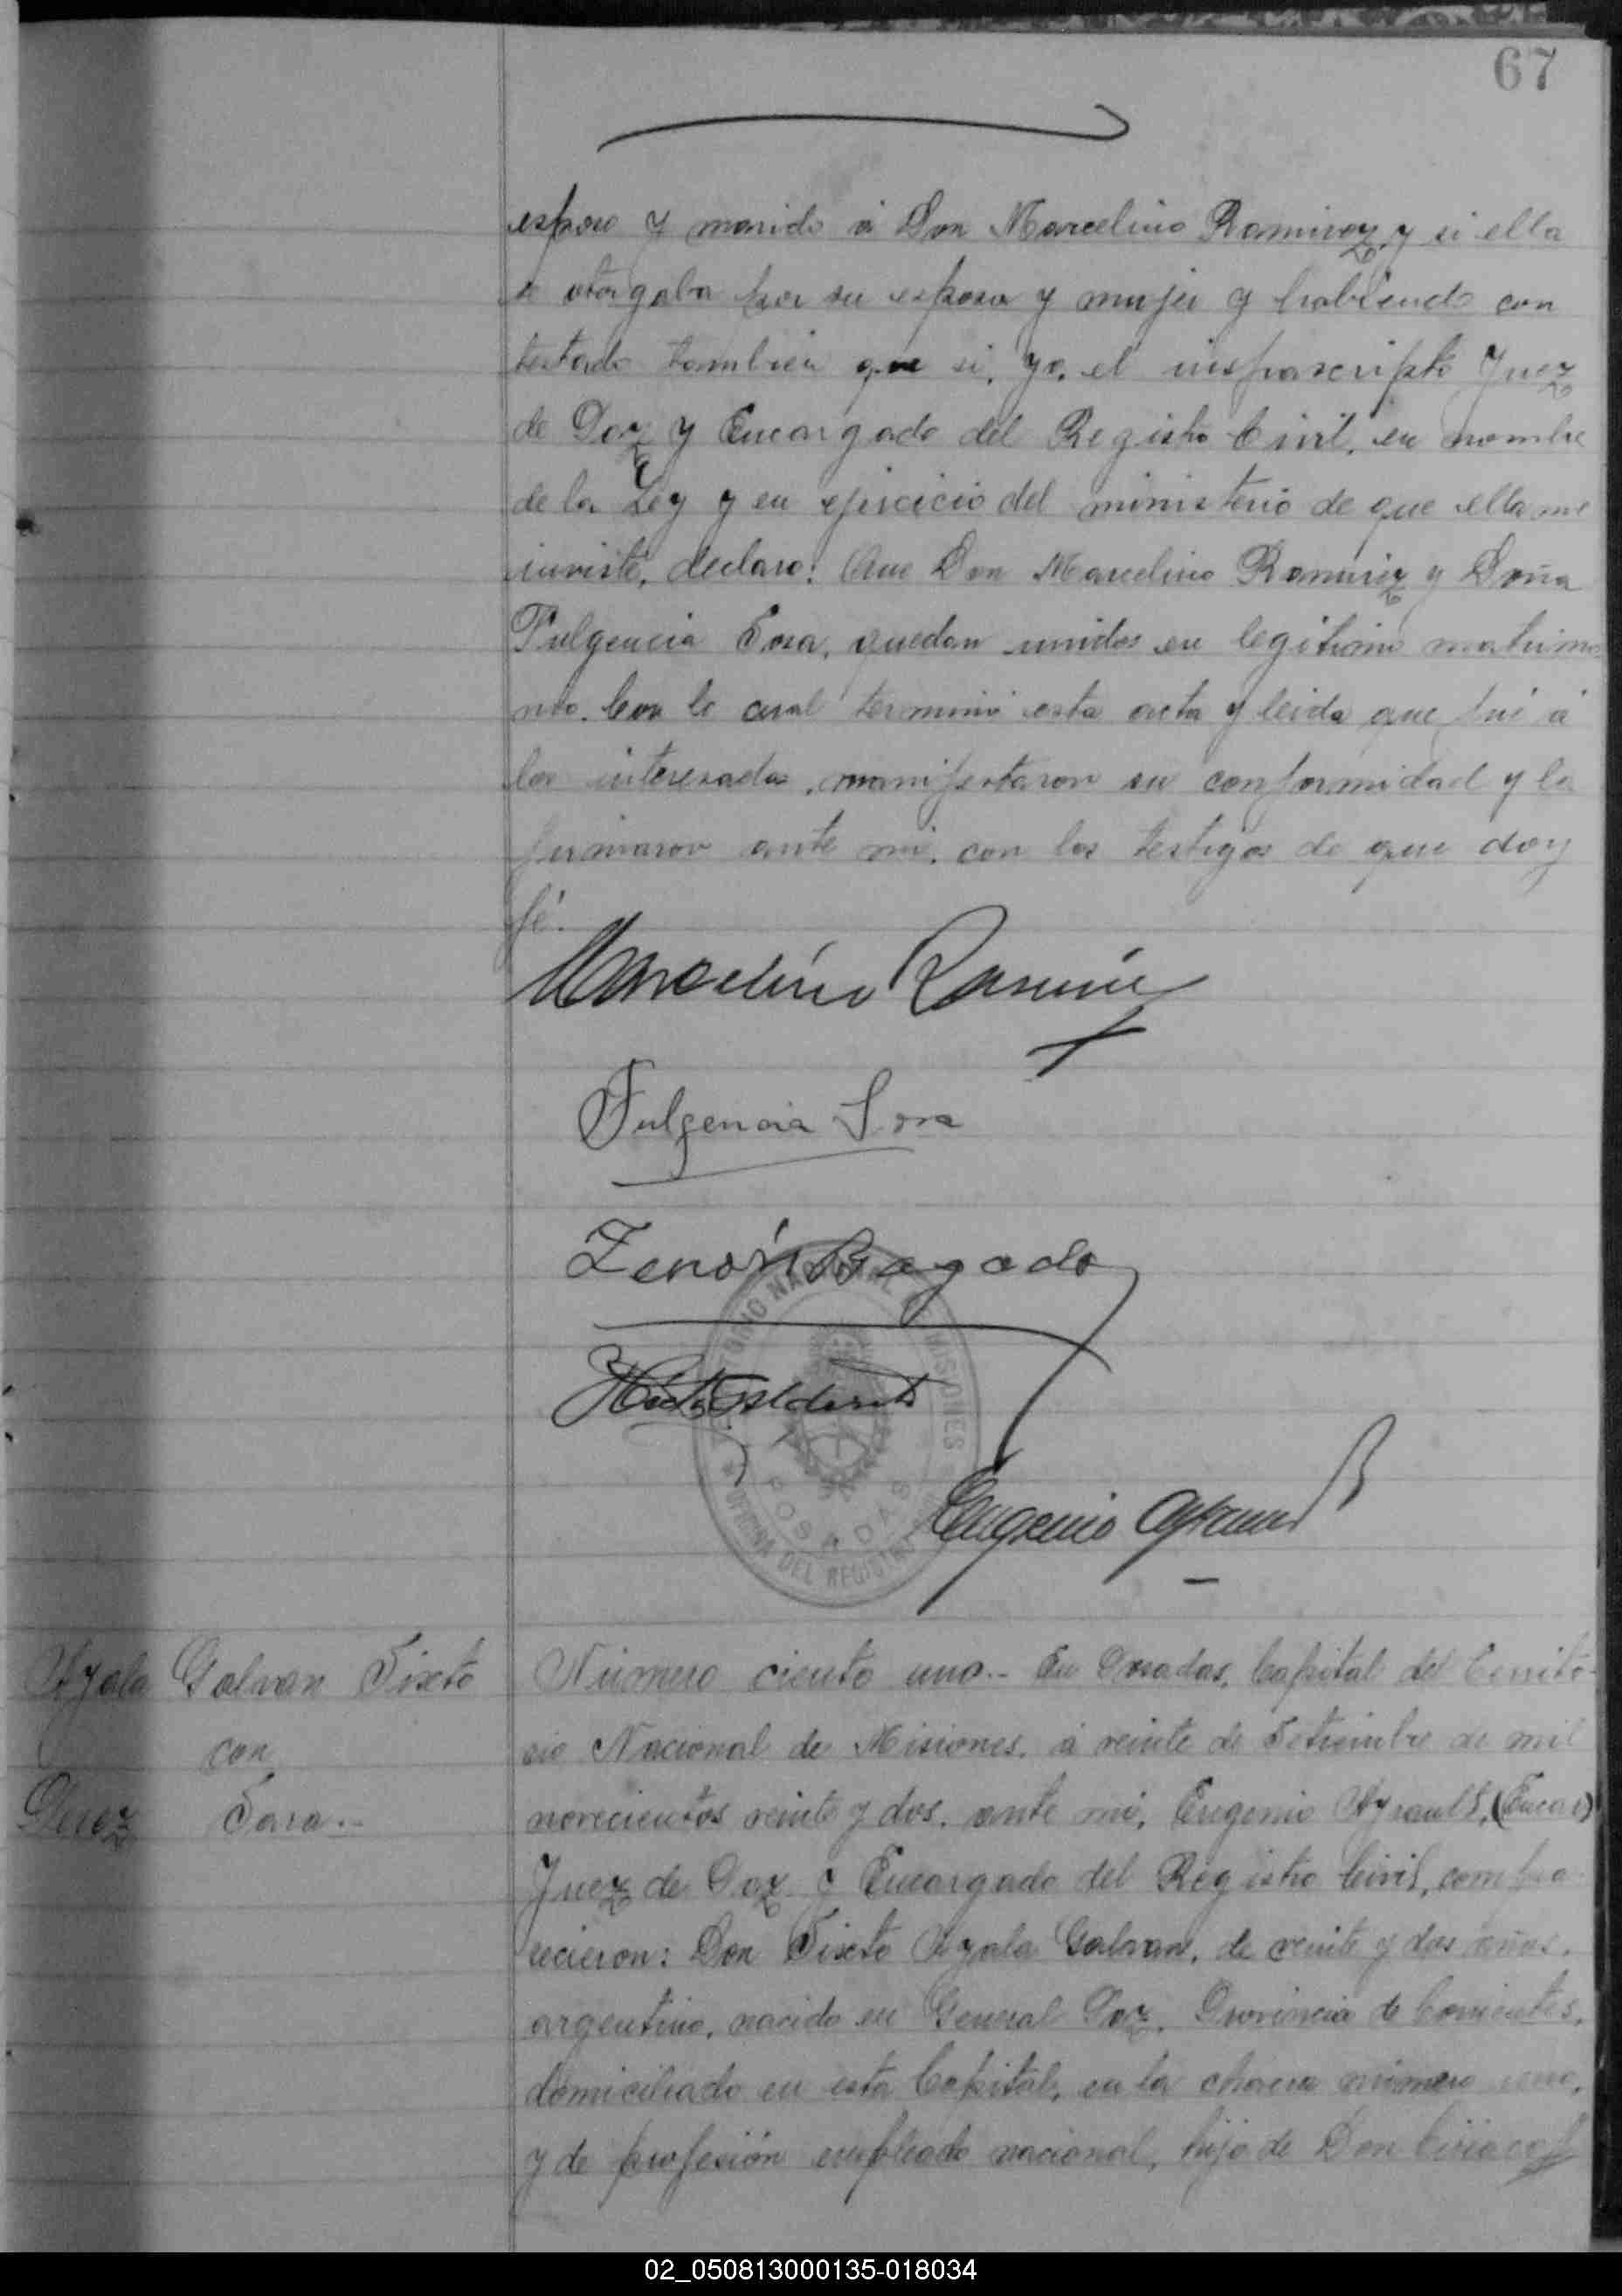 67
esposo y marido á Don Marcelino Ramirez y si ella
se otorgaba por su esposa y mujer y habiendo con
testado tambien que si, yo, el infrascripto Juez
de Paz y Encargado del Registro Civil, en nombre
de la Ley y en ejercicio del ministerio de que ella me
inviste, declaro: Que Don Marcelino Ramirez y Doña
Fulgencia Sosa, quedan unidos en legitimo matrimo
nio. Con lo cual terminó esta acta y leida que fué á
los interesados, manifestaron su conformidad y la
firmaron ante mi, con los testigos de que doy
fé.
Marcelino Ramirez
Fulgencia Sosa
Zenón Bogado
TERRITORIO NACIONAL DE MISIONES
POSADAS
OFICINA DEL REGISTRO
Eugenio Ayrault
Ayala Galvan Sixto
con
Perez Sara.-
Número ciento uno.- En Posadas, Capital del Territo-
rio Nacional de Misiones, á veinte de Setiembre de mil
novecientos veinte y dos, ante mi, Eugenio Ayrault, (Encar)
Juez de Paz y Encargado del Registro Civil, compa-
recieron: Don Sixto Ayala Galvan, de veinte y dos años,
argentino, nacido en General Paz, Provincia de Corrientes,
domiciliado en esta Capital, en la chacra número uno,
y de profesión empleado nacional, hijo de Don Ciriaco
02_050813000135-018034